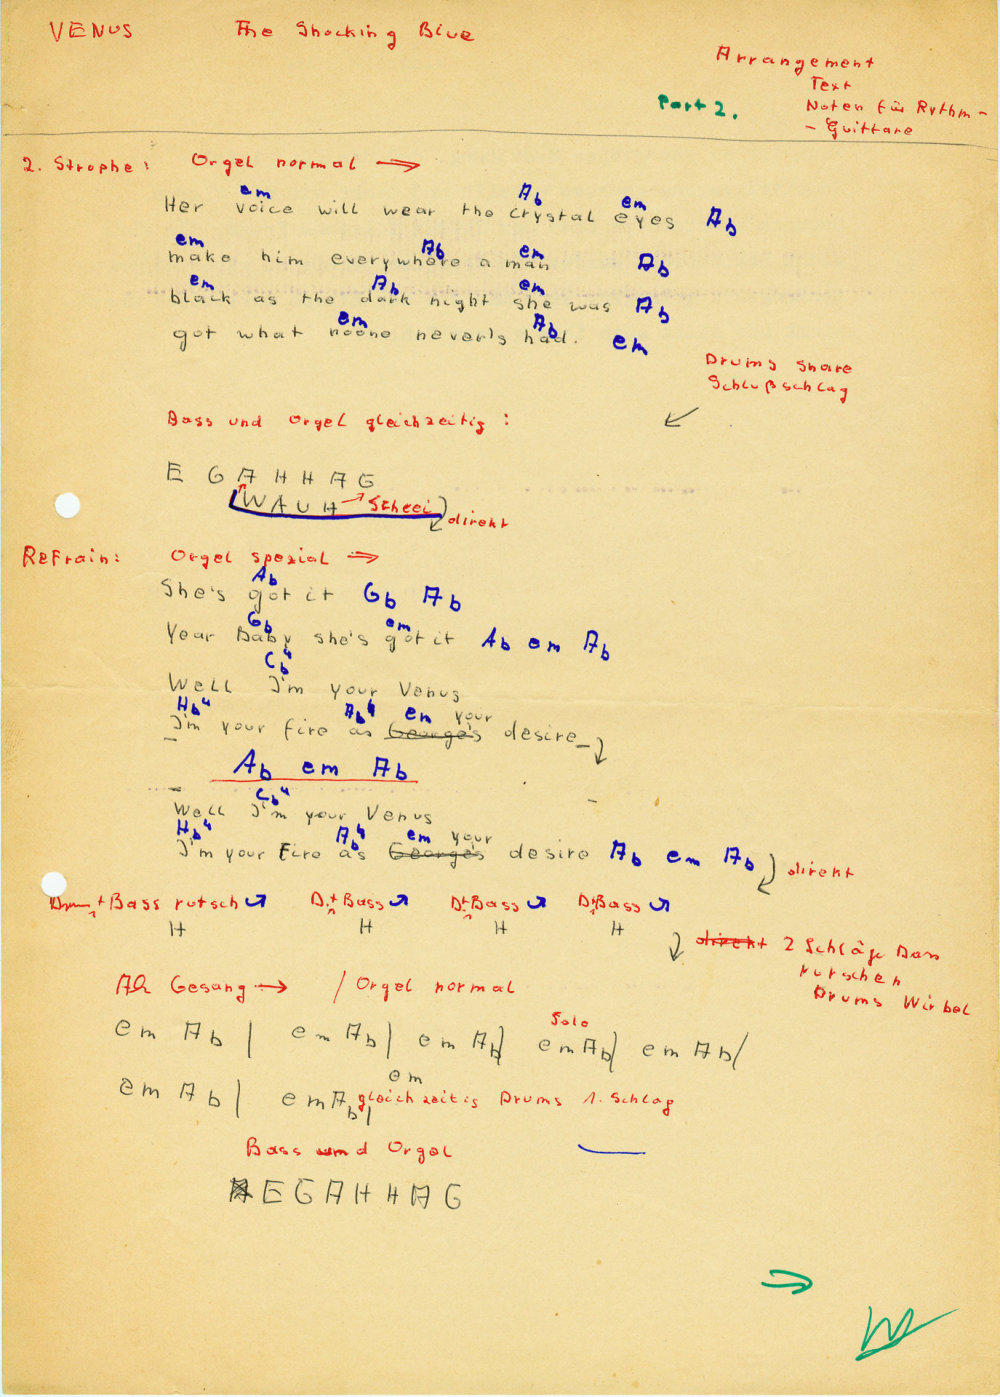 VENUS The Shocking Blue
Arrangement
Text
Part 2. Noten für Rythm-
- Guittare
2. Strophe: Orgel normal →
em Ab em
Her voice will wear the crystal eyes Ab
em Ab em
make him everywhere a man Ab
em Ab em
black as the dark night she was Ab
em Ab
got what noone never's had. em
Drums snare
Schlußschlag
Bass und Orgel gleichzeitig:
E G A H H A G
WAUH → Schrei direkt
Refrain: Orgel spezial →
Ab
She's got it Gb Ab
Gb em
Year Baby she's got it Ab em Ab
Cb4
Well I'm your Venus
Hb4 Ab4 em your
I'm your fire as George's desire
Ab em Ab
Cb4
Well I'm your Venus
Hb4 Ab4 em your
I'm your Fire as George's desire Ab em Ab direkt
Drum + Bass rutsch D.+Bass D+Bass D+Bass
H H H H
direkt 2 Schläge Bass
rutschen
Drums Wirbel
Ah Gesang → / Orgel normal
Solo
em Ab | em Ab | em Ab | em Ab | em Ab /
em
em Ab | em Ab | gleichzeitig Drums 1. Schlag
Bass und Orgel
E G A H H A G
→